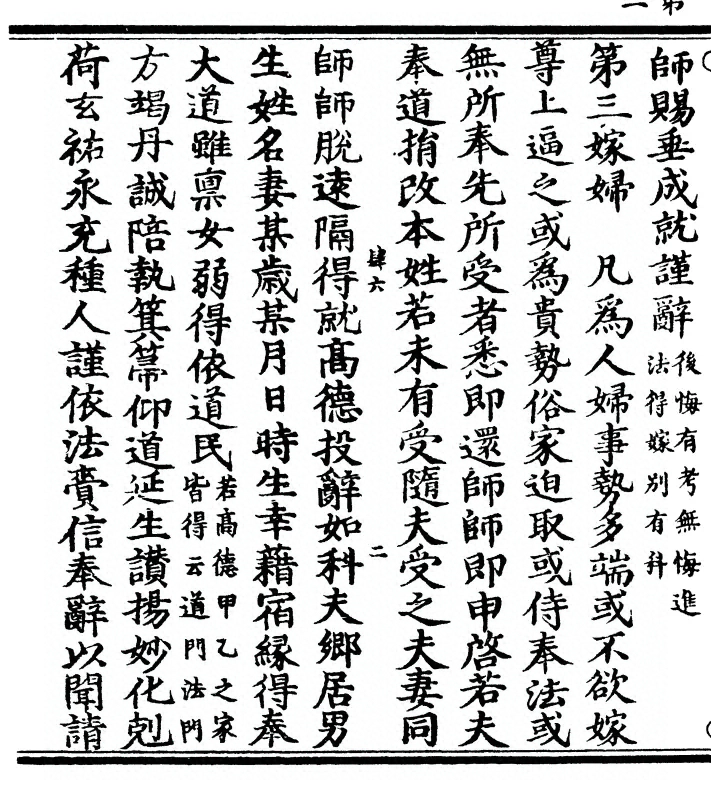 師賜垂成就謹辭後悔有考無悔進法得嫁別有科
第三嫁婦　凡爲人婦事勢多端或不欲嫁
尊上逼之或爲貴勢俗家迫取或侍奉法或
無所奉先所受者悉即還師師即申啓若夫
奉道揹改本姓若未有受隨夫受之夫妻同
肆六　二
師師脫遠隔得就高德投辭如科夫鄉居男
生姓名妻某歲某月日時生幸藉宿緣得奉
大道雖禀女弱得依道民若高德甲乙之家皆得云道門法門
方竭丹誠陪執箕箒仰道延生讃揚妙化剋
荷玄祐永充種人謹依法賷信奉辭以聞請